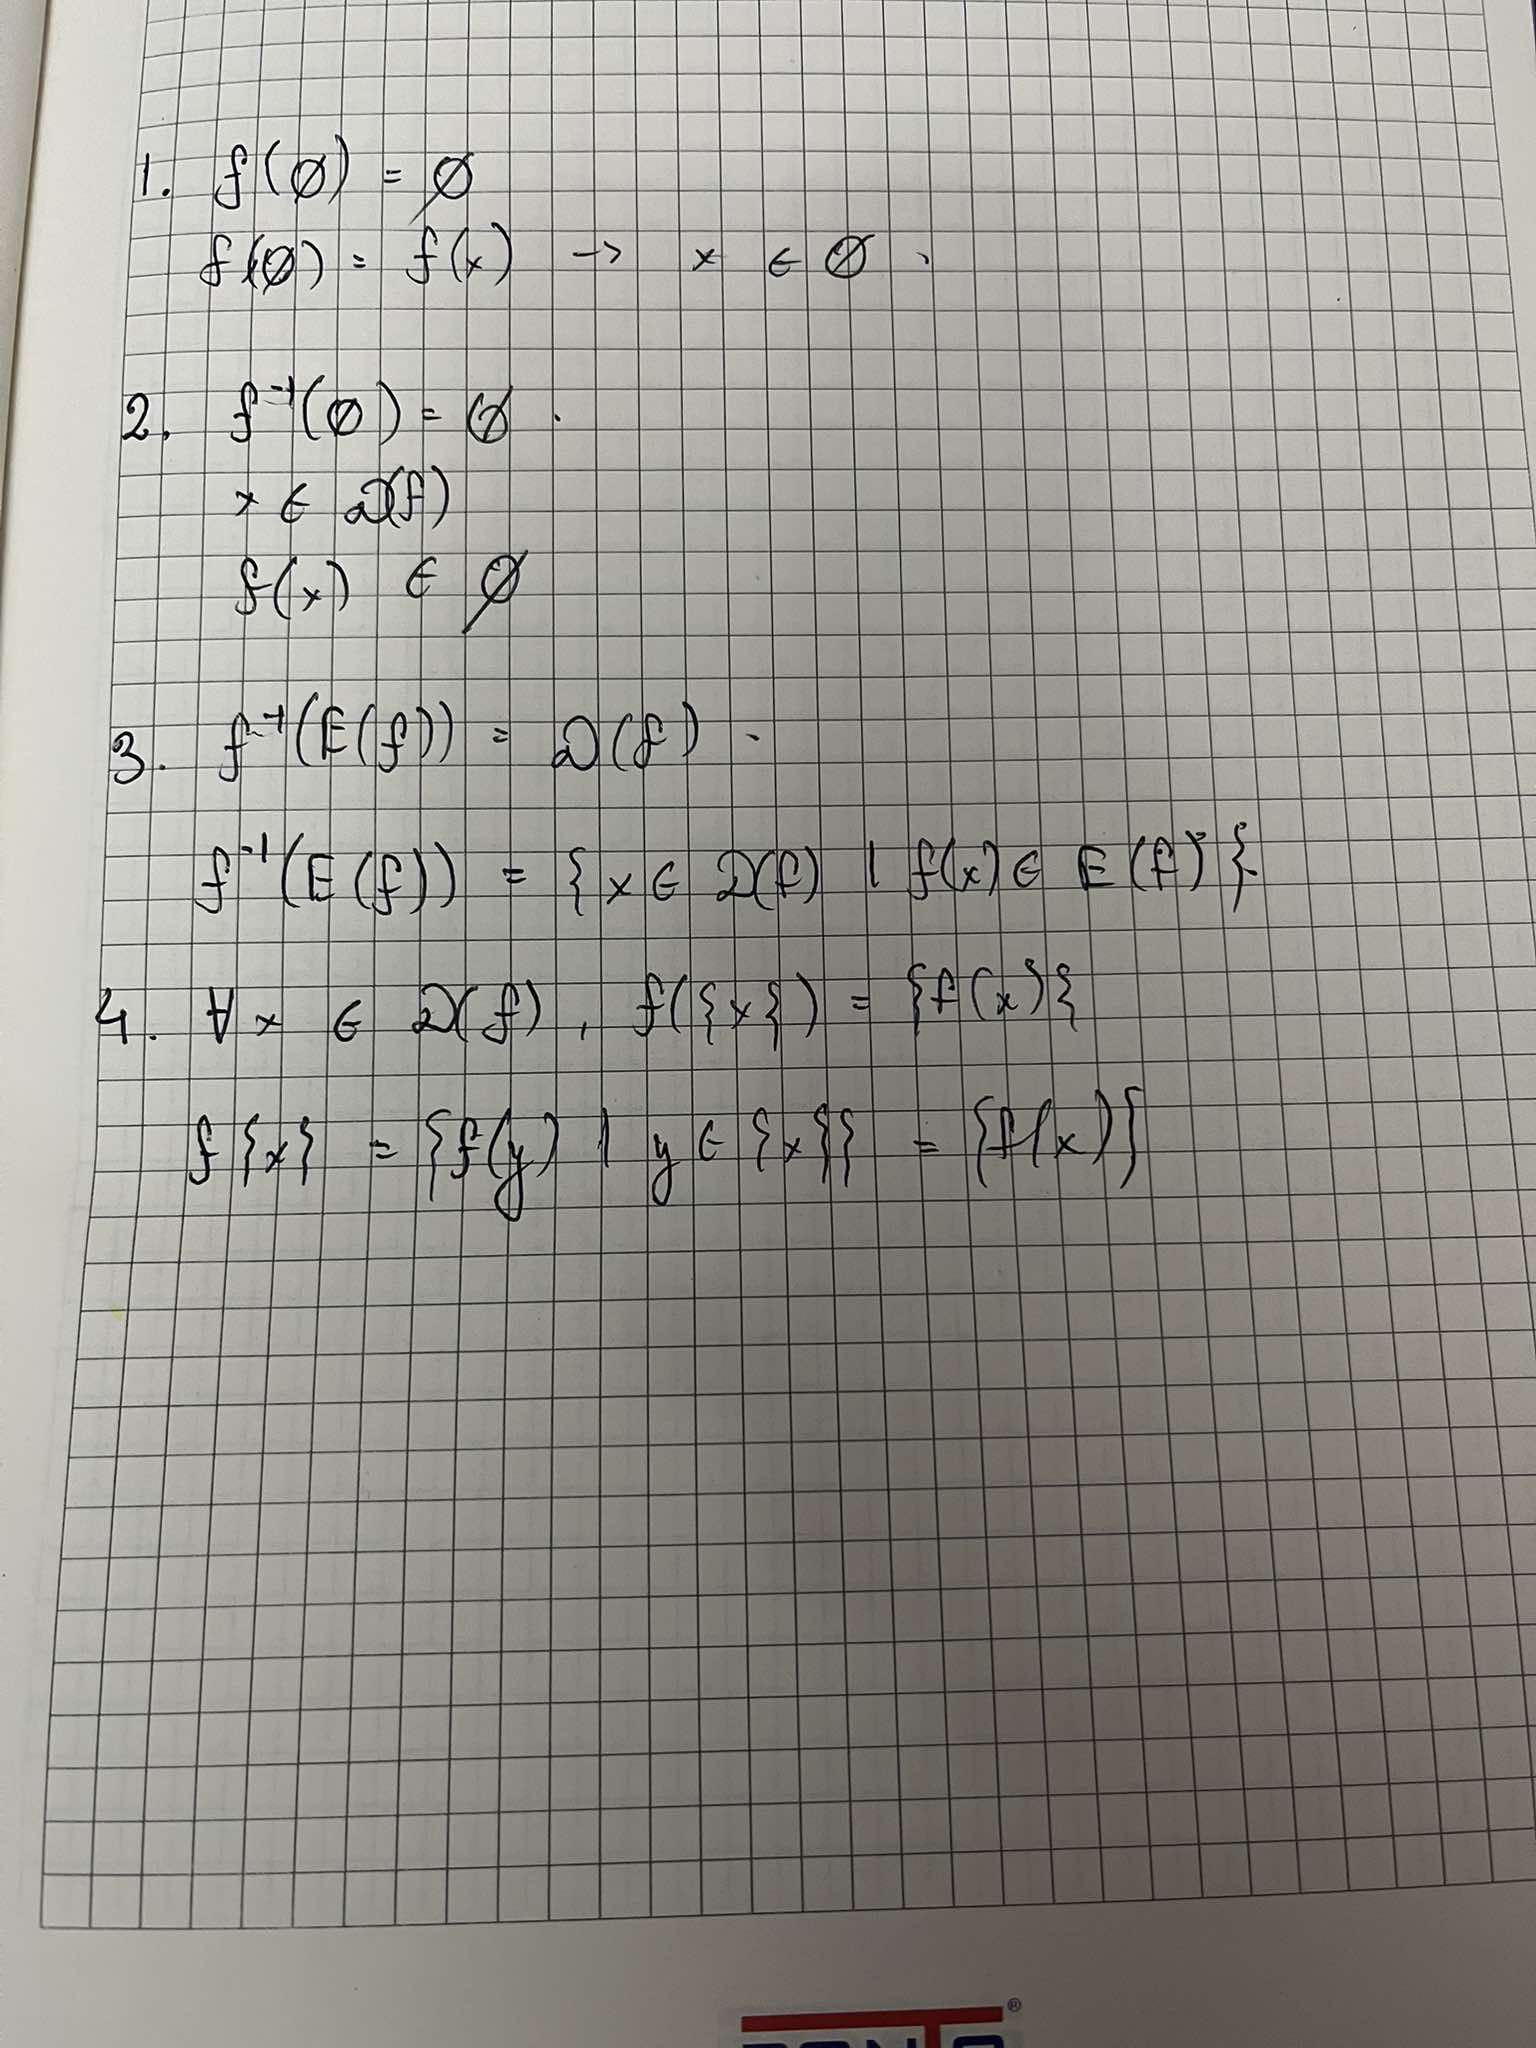 1. f(∅) = ∅
f(∅) = f(x) → x ∈ ∅.
2. f⁻¹(∅) = ∅.
x ∈ D(f)
f(x) ∈ ∅
3. f⁻¹(E(f)) = D(f).
f⁻¹(E(f)) = {x ∈ D(f) | f(x) ∈ E(f)}.
4. ∀x ∈ D(f), f({x}) = {f(x)}
f{x} = {f(y) | y ∈ {x}} = {f(x)}
®